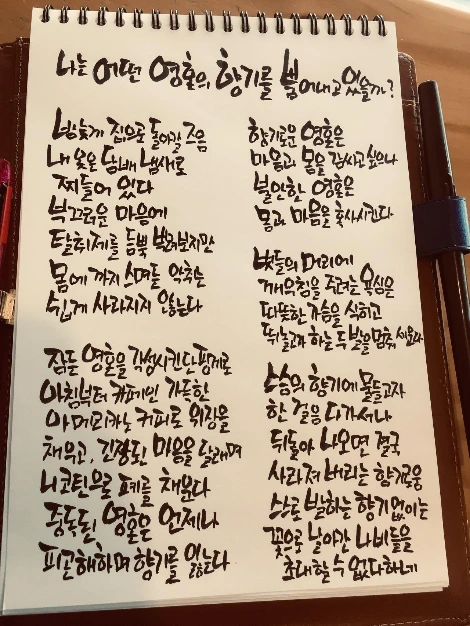 나는 어떤 영혼의 향기를 뿜어내고 있을까?
밤늦게 집으로 돌아갈 즈음
내 옷은 담배 냄새로
찌들어 있다
부끄러운 마음에
탈취제를 듬뿍 뿌려보지만
몸에 까지 스며들 악취는
쉽게 사라지지 않는다
잠든 영혼을 각성시킨단 핑계로
아침부터 카페인 가득한
아메리카노 커피로 위장을
채우고, 긴장된 마음을 달래며
니코틴으로 폐를 채운다
중독된 영혼은 언제나
피곤해하며 향기를 잃는다
향기로운 영혼은
마음과 몸을 감싸고 싶으나
불안한 영혼은
몸과 마음을 혹사시킨다
벗들의 머리에
깨우침을 주려는 욕심은
따뜻한 가슴을 식히고
뛰놀고자 하는 두 발을 멈춰 세운다
스승의 향기에 물들고자
한 걸음 다가서나
뒤돌아 나오면 결국
사라져 버리는 향기로움
스스로 발하는 향기 없이는
꽃으로 날아간 나비들을
초대할 수 없다하네